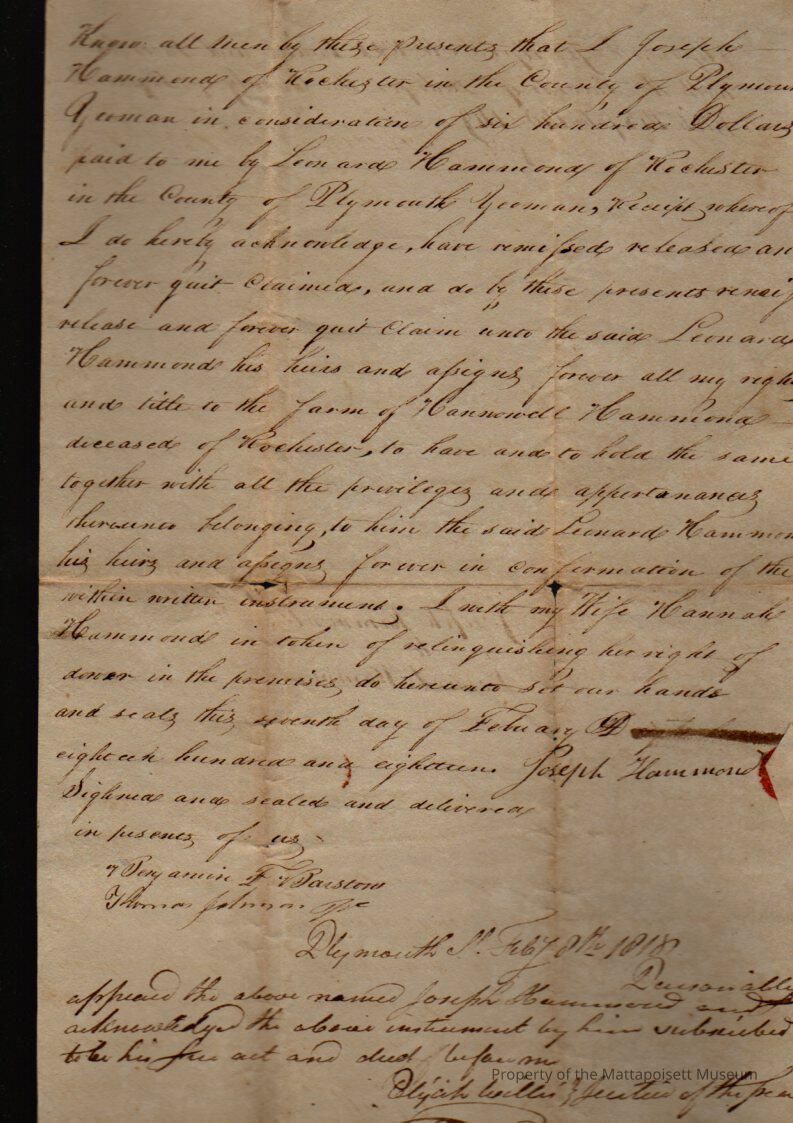 Know all men by these presents that I Joseph
Hammond of Rochester in the County of Plymou
Yeoman in consideration of six hundred Dollars
paid to me by Leonard Hammond of Rochester
in the County of Plymouth Yeoman, Receipt whereof
I do hereby acknowledge, have remissed released an
forever quit claimed, and do by these presents
release and forever quit claim unto the said Leonard
Hammond his heirs and assigns forever all my righ
and title to the farm of Hannowell Hammond
deceased of Rochester, to have and to hold the same
together with all the privileges and appertanances
thereunto belonging, to him the said Leonard Hammon
his heirs and assigns forever in confirmation of the
within written instrument. I with my Wife Hannah
Hammond in token of relinquishing her right of
dower in the premises do hereunto set our hands
and seals this seventh day of Febuary
eighteen hundred and eighteen. Joseph Hammond
Sighned and sealed and delivered
in presents of us
Benjamin F Barstow
Thomas
Plymouth Ss. Feby 8th 1818
Personally
appeared the above named Joseph Hammond and
acknowledged the above instrument by him subscribed
to be his free act and deed before me
Property of the Mattapoisett Museum
Elijah Willis Justice of the Pea